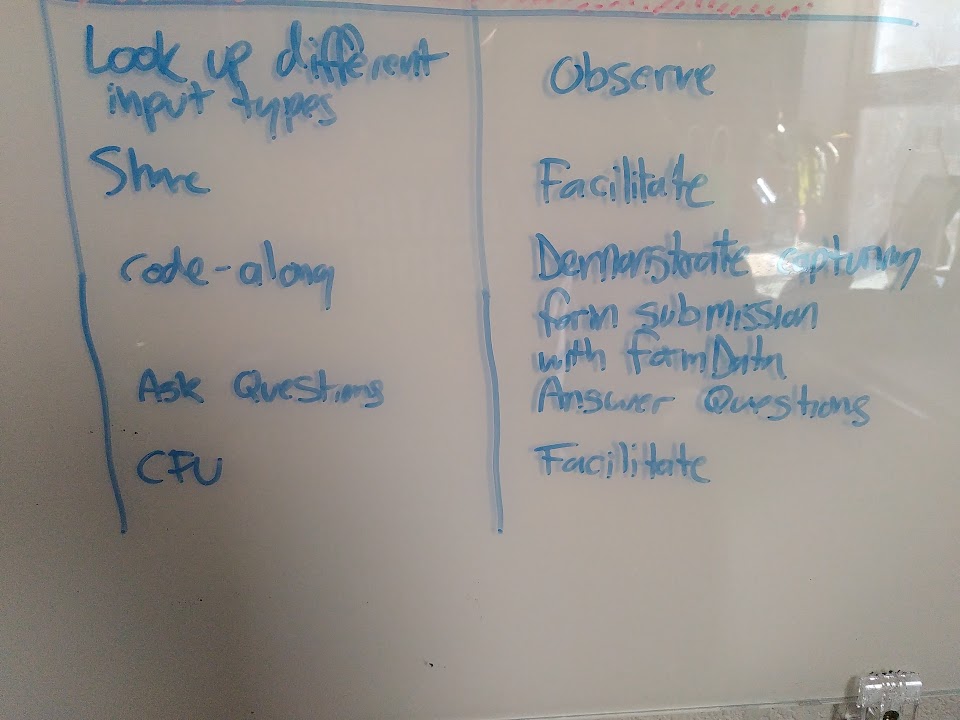 Look up different
input types
Observe
Share
Facilitate
code-along
Demonstrate capturing
form submission
with FormData
Ask Questions
Answer Questions
CFU
Facilitate